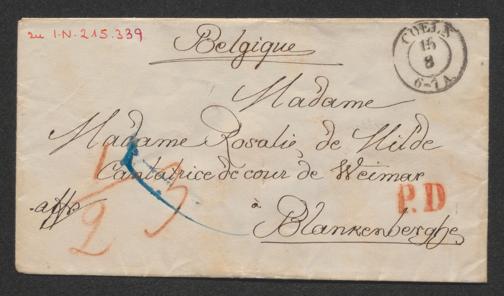 zu I.N. 215.339
Belgique
COELN
15
8
6-7 A.
Madame
Madame Rosalie de Milde
Cantatrice de cour de Weimar
P.D
affr
à
Blankenberghe
1/2 3